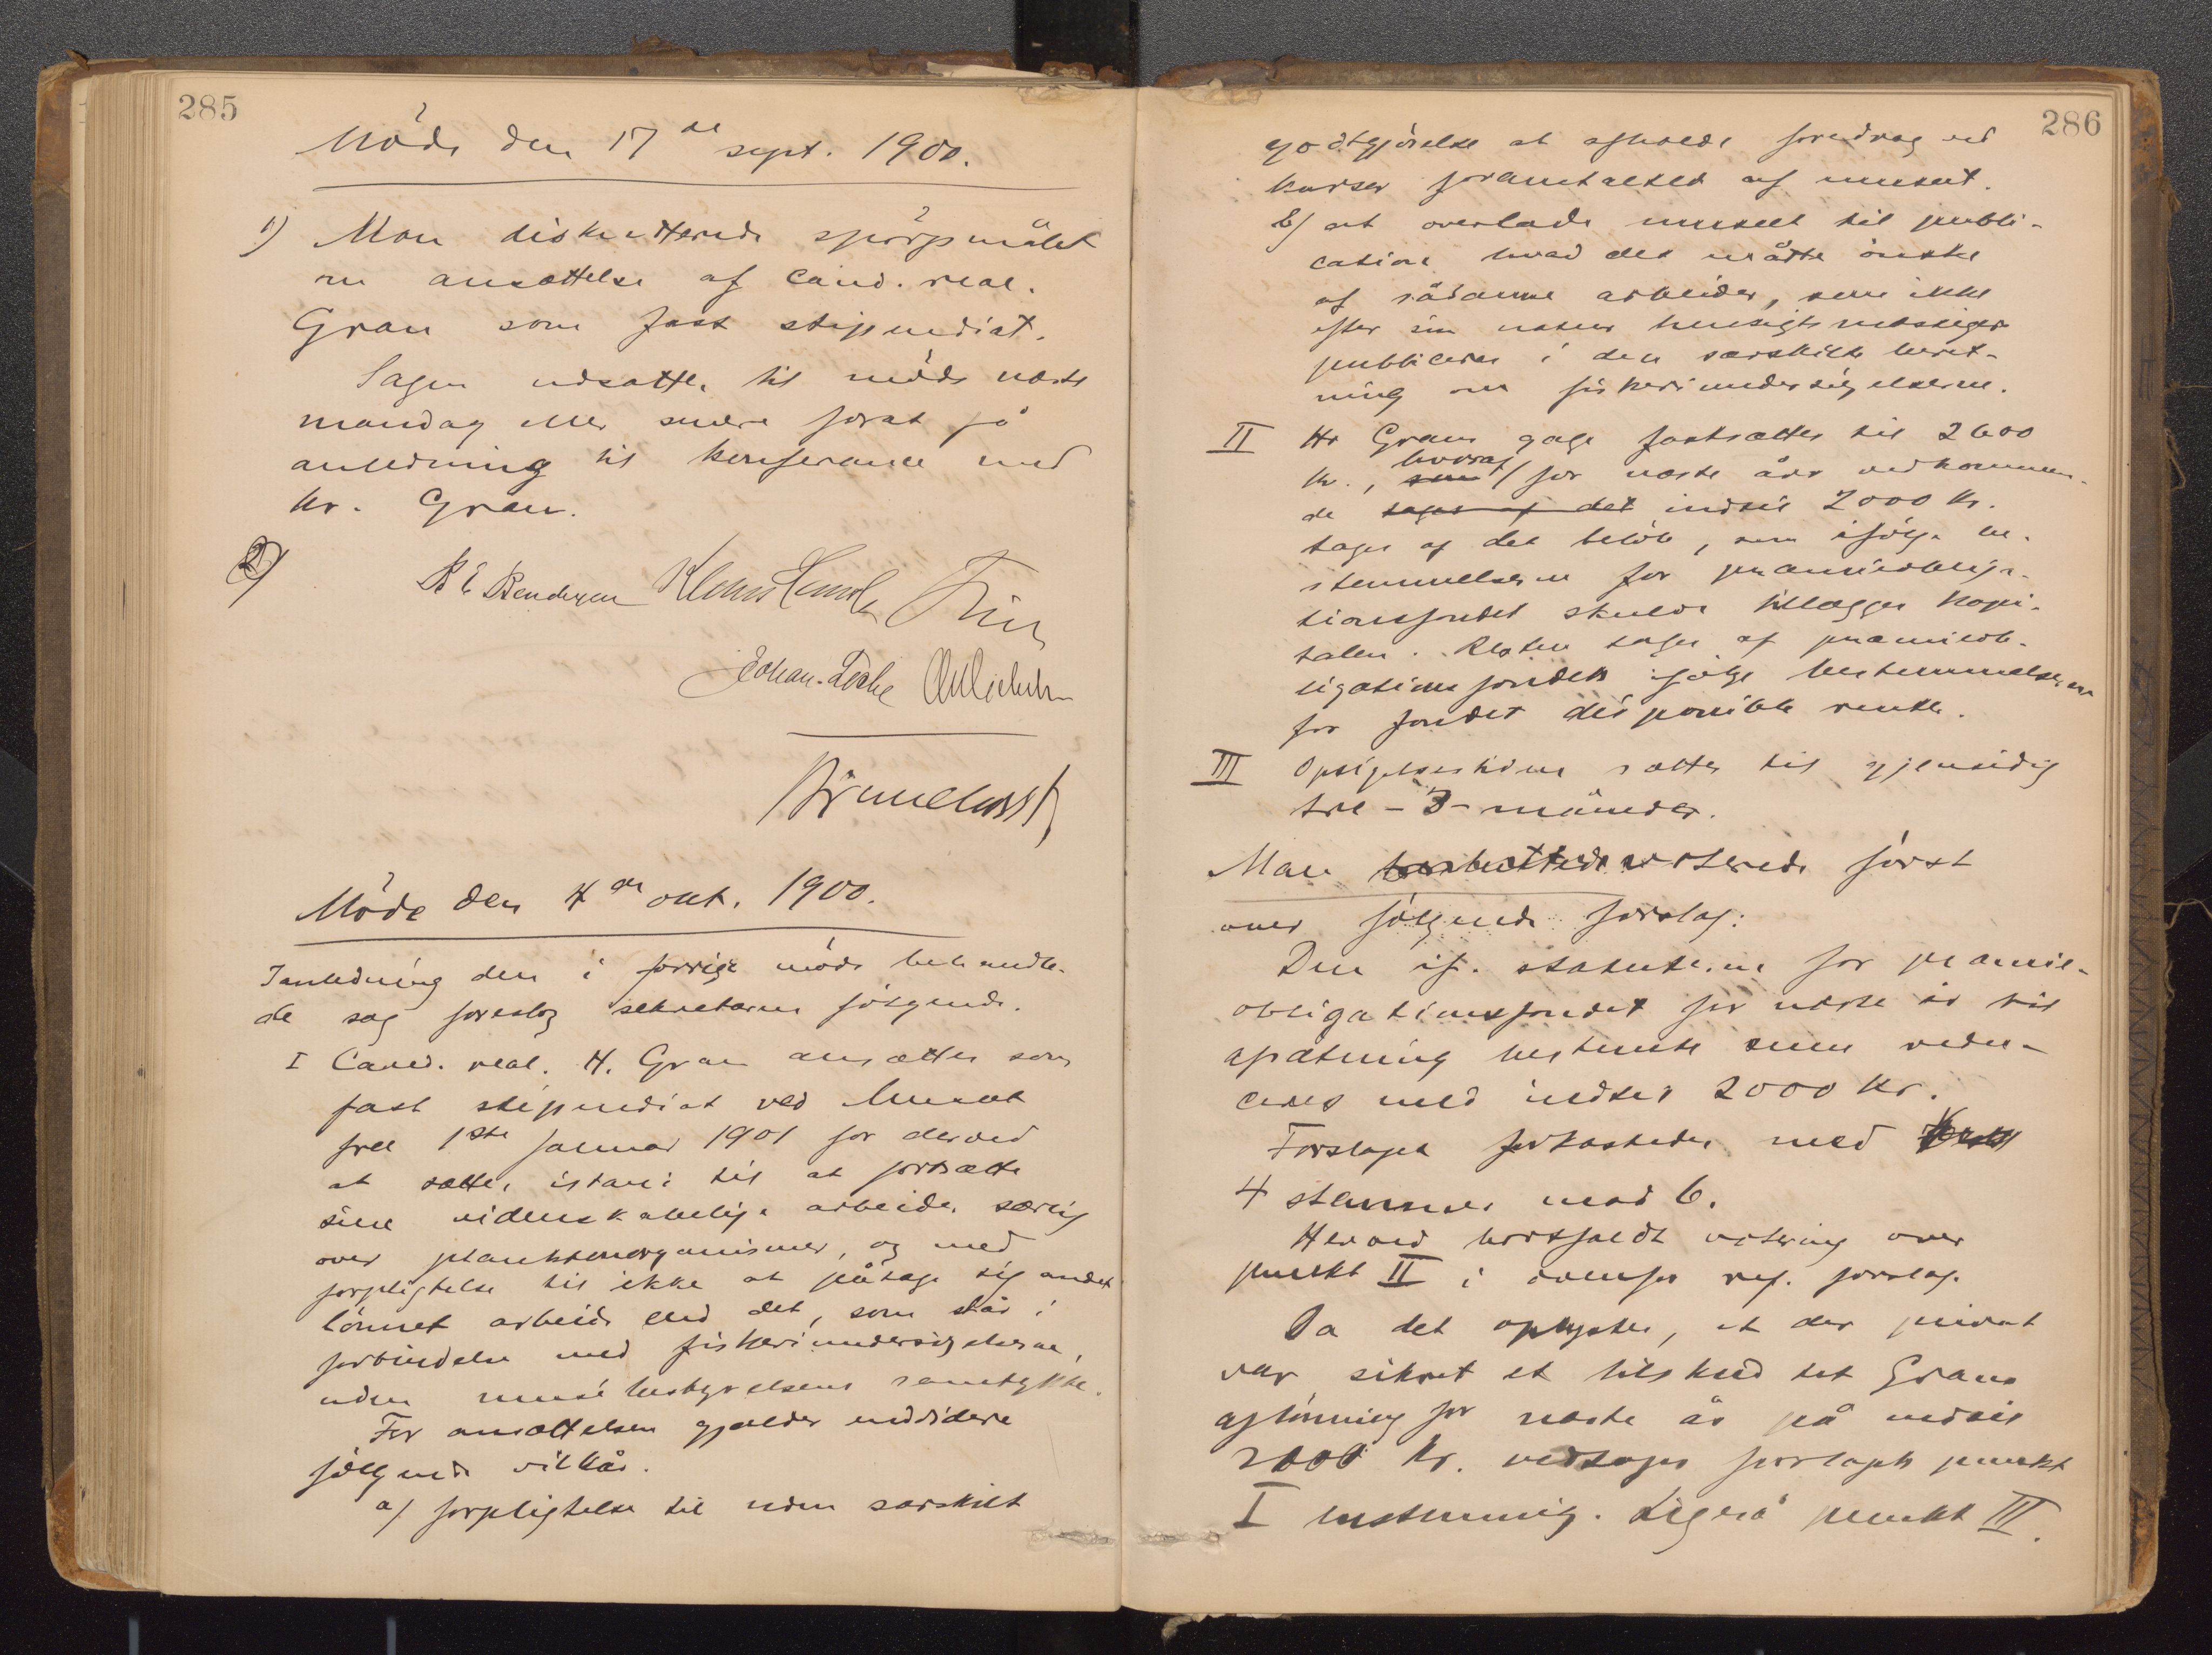 285
Möde den 17de sept. 1900.
1) Man diskutterede spörgsmålet
om ansættelse af cand. real.
Gran som fast stipendiat.
Sagen udsattes til möde næste
mandag eller senere forat få
anledning til konferance med
hr. Gran.
2)
B E Bendixen Klaus Hanssen Friis
Johan Lothe
Brunchorst
Möde den 4de okt. 1900.
I anledning den i forrige möde behandle-
de sag foreslog sekretæren fölgende.
I Cand. real. H. Gran ansættes som
fast stipendiat ved Museet
fra 1ste januar 1901 for derved
at sættes istand til at fortsætte
sine videnskabelige arbeider særlig
over planktonorganismer, og med
forpligtelse til ikke at påtage sig andet
lönnet arbeide end det, som står i
forbindelse med fiskeriundersögelserne,
uden musébestyrelsens samtykke.
For ansættelsen gjælder endvidere
fölgende vilkår.
a) forpligtelse til uden særskilt
286
godtgjörelse at afholde foredrag ved
kurser foranstaltet af museet.
b) at overlade museet til publi-
cation hvad det måtte önske
af sådanne arbeider, som ikke
efter sin natur hensigtsmæssigere
publiceres i den særskilte beret-
ning om fiskeriundersögelserne.
II Hr Grans gage fastsættes til 2600
kr., som hvoraf for næste års vedkommen-
de tages af det indtil 2000 kr.
tages af det belöb, som ifölge be-
stemmelserne for præmieobliga-
tionsfondet skulde tillægges kapi-
talen. Resten tages af præmieob-
ligationsfondets ifölge bestemmelserne
for fondet disponible rente.
III Opsigelsestiden sættes til gjensidig
tre - 3 - måneder.
Man voterede först
over fölgende forslag:
Den if. statuterne for præmie-
obligationsfondet for næste år til
oplægning bestemte sum redu-
ceres med indtil 2000 kr.
Forslaget forkastedes med
4 stemmer mod 6.
Herved bortfaldt votering over
punkt II i ovenfor ref. forslag.
Da det oplystes, at der privat
var sikret et tilskud til Grans
aflönning for næste år på indtil
2000 kr. vedtoges forslagets punkt
I enstemmig. Ligeså punkt III.